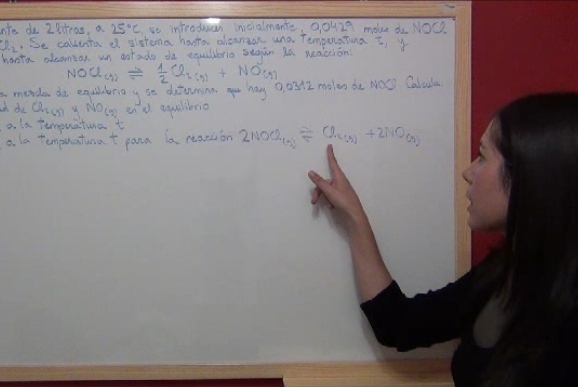 nte de 2 litros, a 25°C, se introducen inicialmente 0,0429 moles de NOCl
Cl₂. Se calienta el sistema hasta alcanzar una temperatura t, y
hasta alcanzar un estado de equilibrio según la reacción:
NOCl(g) ⇌ 1/2 Cl₂(g) + NO(g)
a mezcla de equilibrio y se determina que hay 0,0312 moles de NOCl. Calcula
ad de Cl₂(g) y NO(g) en el equilibrio
a la temperatura t
a la temperatura t para la reacción 2NOCl(g) ⇌ Cl₂(g) + 2NO(g)